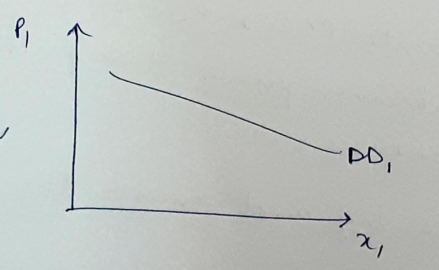 P₁
DD₁
x₁